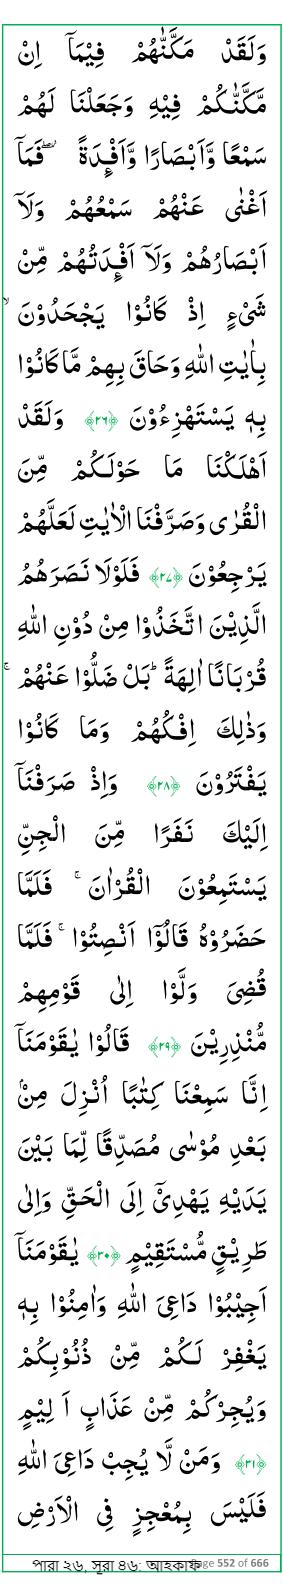 وَلَقَدْ مَكَّنّٰهُمْ فِيْمَاۤ اِنْ
مَّكَّنّٰكُمْ فِيْهِ وَجَعَلْنَا لَهُمْ
سَمْعًا وَّاَبْصَارًا وَّاَفْـِٕدَةً ۖؗ فَمَاۤ
اَغْنٰى عَنْهُمْ سَمْعُهُمْ وَلَاۤ
اَبْصَارُهُمْ وَلَاۤ اَفْـِٕدَتُهُمْ مِّنْ
شَیْءٍ اِذْ كَانُوْا يَجْحَدُوْنَ ۙ
بِاٰيٰتِ اللّٰهِ وَحَاقَ بِهِمْ مَّا كَانُوْا
بِهٖ يَسْتَهْزِءُوْنَ ﴿۲۶﴾ وَلَقَدْ
اَهْلَكْنَا مَا حَوْلَكُمْ مِّنَ
الْقُرٰى وَصَرَّفْنَا الْاٰيٰتِ لَعَلَّهُمْ
يَرْجِعُوْنَ ﴿۲۷﴾ فَلَوْلَا نَصَرَهُمُ
الَّذِيْنَ اتَّخَذُوْا مِنْ دُوْنِ اللّٰهِ
قُرْبَانًا اٰلِهَةً ؕ بَلْ ضَلُّوْا عَنْهُمْ ۚ
وَذٰلِكَ اِفْكُهُمْ وَمَا كَانُوْا
يَفْتَرُوْنَ ﴿۲۸﴾ وَاِذْ صَرَفْنَاۤ
اِلَيْكَ نَفَرًا مِّنَ الْجِنِّ
يَسْتَمِعُوْنَ الْقُرْاٰنَ ۚ فَلَمَّا
حَضَرُوْهُ قَالُوْۤا اَنْصِتُوْا ۚ فَلَمَّا
قُضِیَ وَلَّوْا اِلٰى قَوْمِهِمْ
مُّنْذِرِيْنَ ﴿۲۹﴾ قَالُوْا يٰقَوْمَنَاۤ
اِنَّا سَمِعْنَا كِتٰبًا اُنْزِلَ مِنْۢ
بَعْدِ مُوْسٰى مُصَدِّقًا لِّمَا بَيْنَ
يَدَيْهِ يَهْدِیْۤ اِلَى الْحَقِّ وَاِلٰى
طَرِيْقٍ مُّسْتَقِيْمٍ ﴿۳۰﴾ يٰقَوْمَنَاۤ
اَجِيْبُوْا دَاعِیَ اللّٰهِ وَاٰمِنُوْا بِهٖ
يَغْفِرْ لَكُمْ مِّنْ ذُنُوْبِكُمْ
وَيُجِرْكُمْ مِّنْ عَذَابٍ اَ لِيْمٍ
﴿۳۱﴾ وَمَنْ لَّا يُجِبْ دَاعِیَ اللّٰهِ
فَلَيْسَ بِمُعْجِزٍ فِی الْاَرْضِ
পারা ২৬, সূরা ৪৬: আহকাফ Page 552 of 666